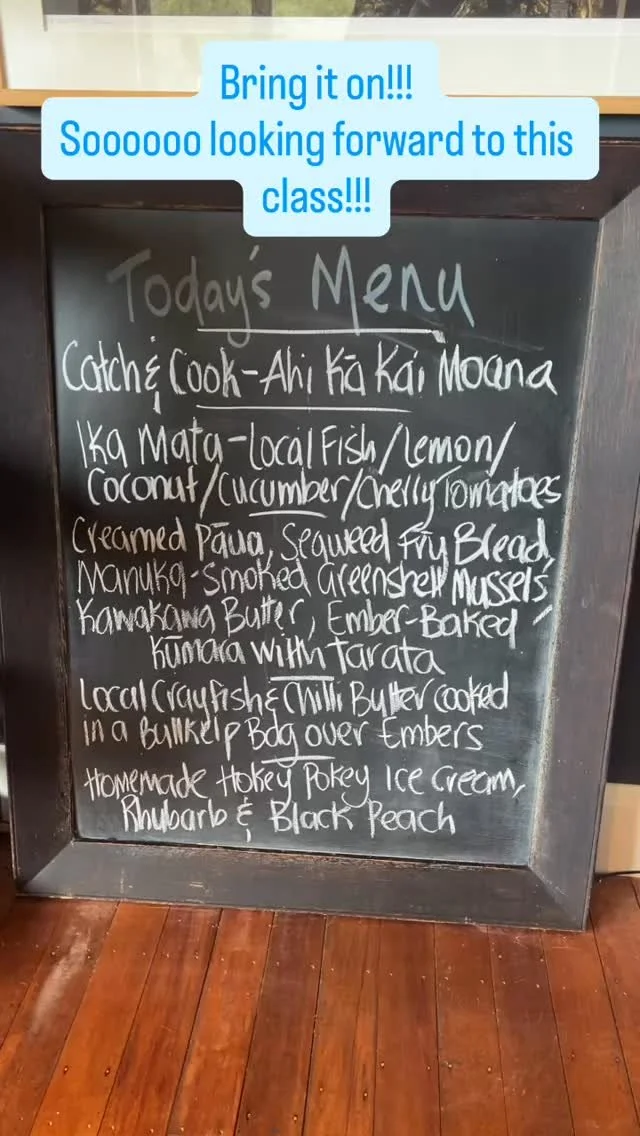 Bring it on!!!
Soooooo looking forward to this
class!!!
Today's Menu
Catch & Cook - Ahi Kā Kai Moana
Ika Mata - Local Fish / Lemon /
Coconut / Cucumber / Cherry Tomatoes
Creamed Pāua, Seaweed Fry Bread,
Manuka-Smoked Greenshell Mussels
Kawakawa Butter, Ember-Baked
Kūmara with Tarata
Local Crayfish & Chilli Butter cooked
in a Bullkelp Bag over Embers
Homemade Hokey Pokey Ice Cream,
Rhubarb & Black Peach